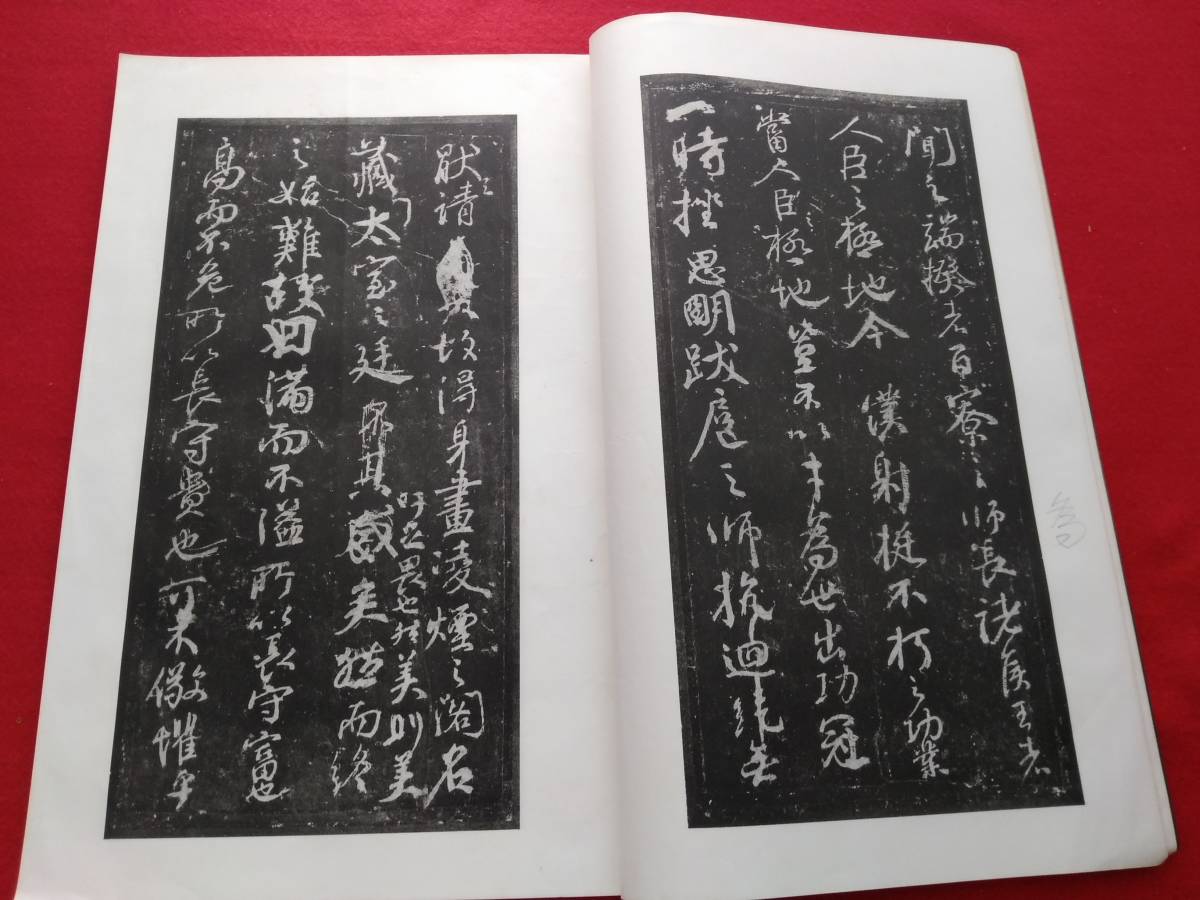 聞之端揆者百寮之師長諸侯王者
人臣之極地今僕射挺不朽之功業
當人臣之極地豈不以才為世出功冠
一時挫思明跋扈之師抗迴紇無
猒之請故得身畫凌煙之閣名
藏太室之廷
吁足畏也然美則美
矣然而終
之始難故曰滿而不溢所以長守富也
高而不危所以長守貴也可不儆懼乎